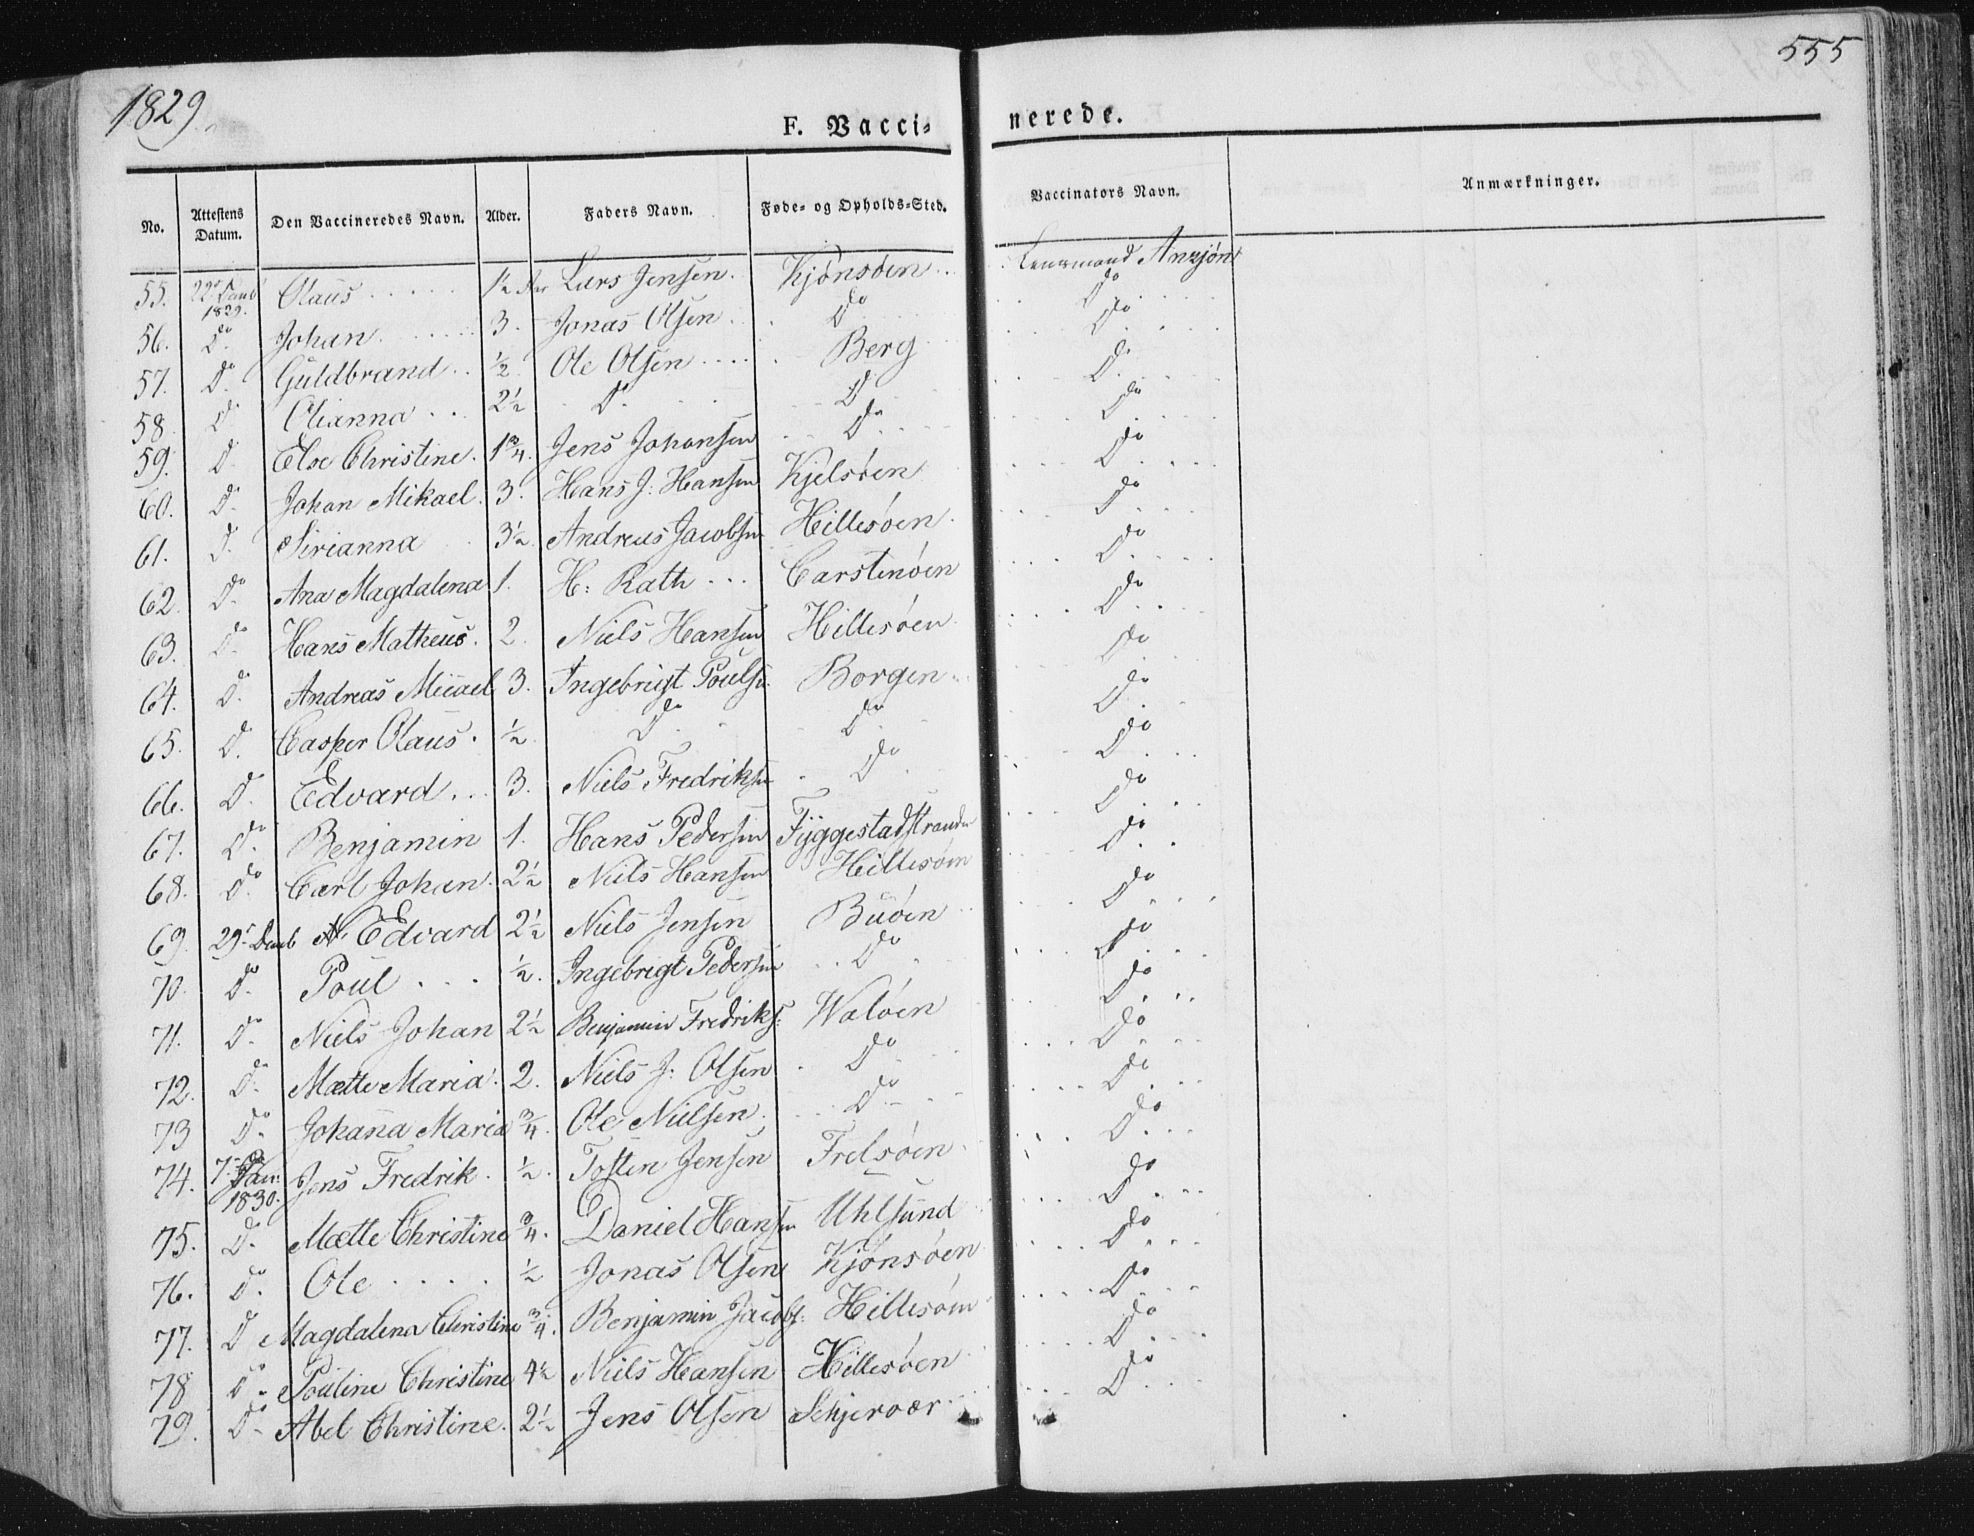 1829
555
F. Vacci- nerede.
No. Attestens Datum. Den Vaccineredes Navn. Alder. Faders Navn. Føde- og Opholds-Sted. Vaccinators Navn. Anmærkninger.
55. 22de Decemb 1829. Olaus 1½ Aar Lars Jensen. Kjönsöen Lensmand
56. Do Johan 3. Jonas Olsen Do Do
57. Do Guldbrand ½ Ole Olsen Berg Do
58 Do Olianna 2½ Do Do Do
59. Do Else Christine. 1¾. Jens Johansen Do Do
60. Do Johan Mikael. 3. Hans J: Hansen Kjelsöen Do
61. Do Sirianna 3½ Andreas Jacobsen Hillesöen Do
62. Do Ana Magdalena 1. H: Rath Carstenöen Do
63. Do Hans Matheus. 2. Niels Hansen Hillesöen Do
64. Do Andreas Micael 3. Ingebrigt Poulsn Borgen Do
65. Do Casper Olaus. ½ Do Do Do
66. Do Edvard 3. Niels Fredriksn Do Do
67. Do Benjamin 1. Hans Pedersen Fyggestadstranden Do
68. Do Carl Johan. 2½ Niels Hansen Hillesöen Do
69. 29de Decemb N. Edvard 2½ Niels Jensen Buöen Do
70. Do Poul ½. Ingebregt Pedersen Do Do
71. Do Niels Johan 2½ Benjamin Fredriks: Waloen Do
72. Do Mætte Maria. 2. Niels J: Olsen Do Do
73 Do Johana Maria ¾ Ole Nielsen Do Do
74. 7de Jan: 1830. Jens Fredrik. ½. Tosten Jensen Frelsöen Do
75. Do Mætte Christine ¾. Daniel Hansen Uhlsund Do
76. Do Ole ½ Jonas Olsen Kjönsöen Do
77. Do Magdalena Christine ¾. Benjamin Jacobs: Hillesöen Do
78 Do Pouline Christine 4½ Niels Hansen Hillesöen Do
79. Do Abel Christine. 2½ Jens Olsen Schjervær Do